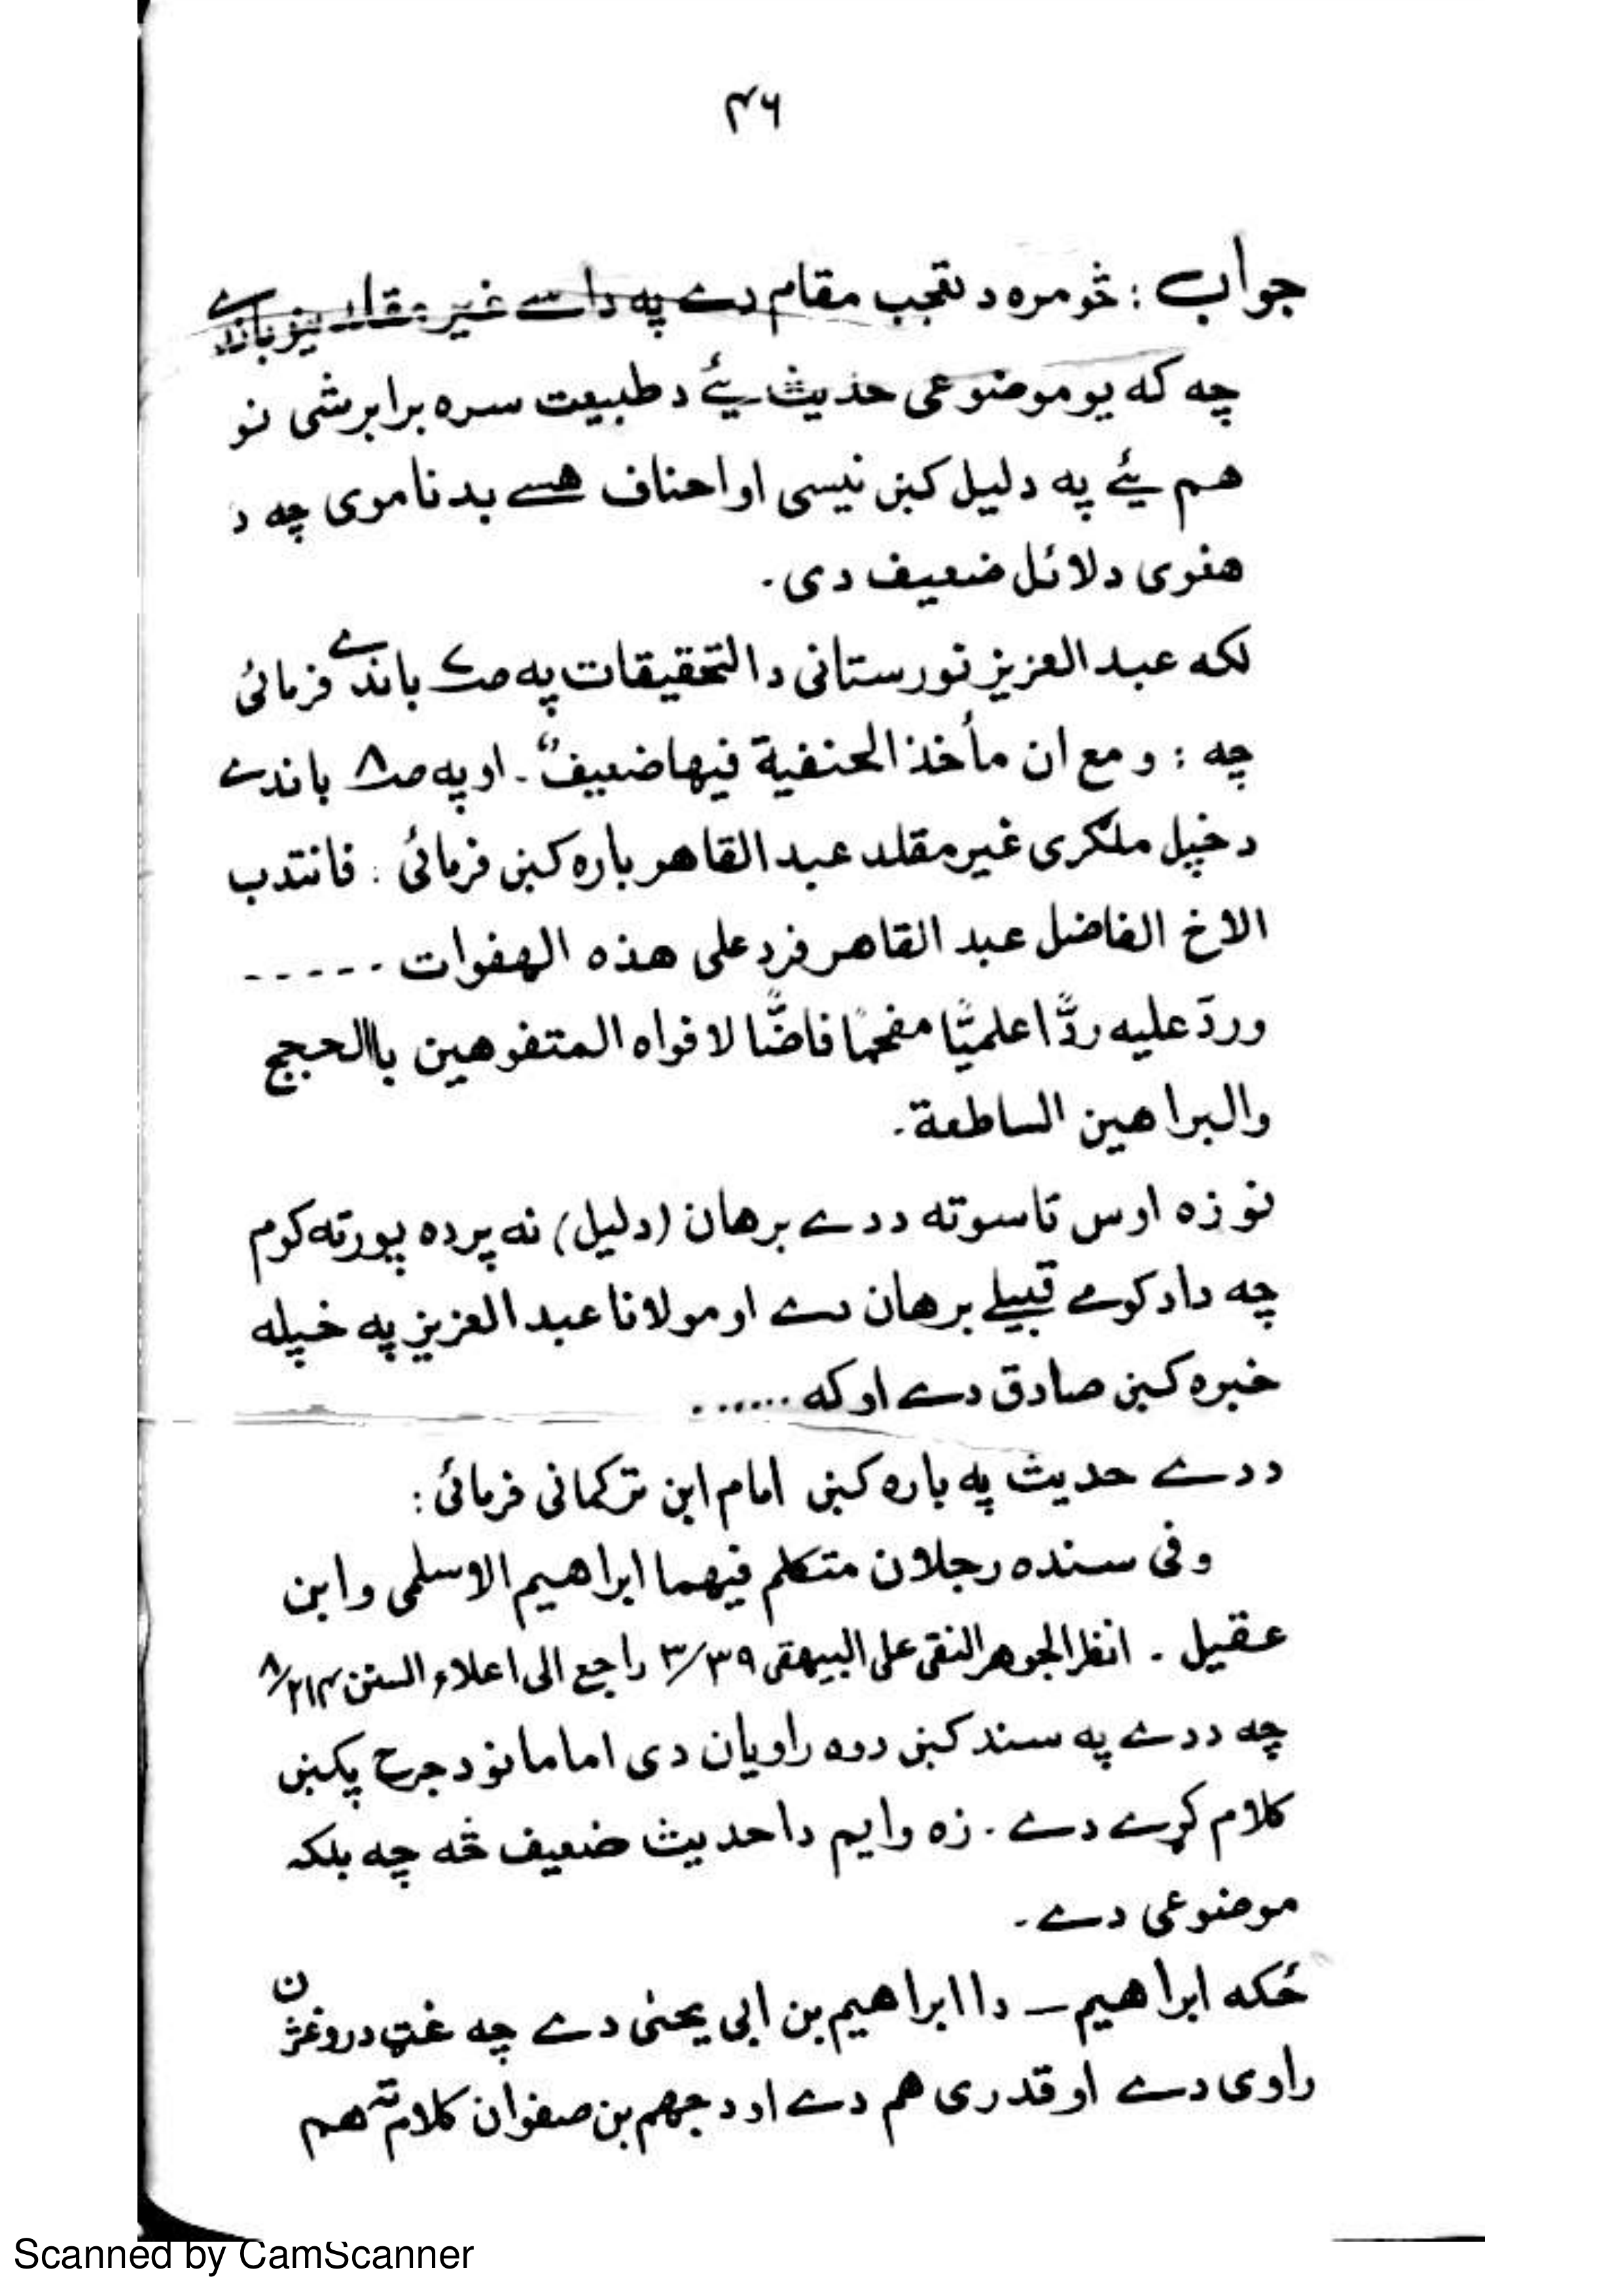 ۴۶
جواب : څومره د تعجب مقام دے په داسے غیر مقلدینو باندے
چه که یو موضوعی حدیث یئے د طبیعت سره برابر شی نو
هم یئے په دلیل کښ نیسی او احناف هسے بدناموی چه د
هغوی دلائل ضعیف دی ۔
لکه عبد العزیز نورستانی د التحقیقات په صـ باندے فرمائی
چه : و مع ان مأخذ الحنفیة فیها ضعیف“ ۔ او په صـ۸ باندے
د خپل ملګری غیر مقلد عبد القاهر باره کښ فرمائی : فانتدب
الاخ الفاضل عبد القاهر فرد علی هذه الهفوات -----
وردّ علیه ردًّا علمیًّا مفحمًا فاضًّا لافواه المتفوهین باالحجج
والبراهین الساطعة ۔
نو زه اوس تاسو ته ددے برهان (دلیل) نه پرده پورته کوم
چه دا د کومے قبیلے برهان دے او مولانا عبد العزیز په خپله
خبره کښ صادق دے او که .......
ددے حدیث په باره کښ امام ابن ترکمانی فرمائی :
وفی سنده رجلان متکلم فیهما ابراهیم الاسلمی وابن
عقیل ۔ انظر الجوهر النقی علی البیهقی ۳/۳۹ راجع الی اعلاء السنن ۸/۲۱۴
چه ددے په سند کښ دوه راویان دی امامانو د جرح پکښ
کلام کړے دے ۔ زه وایم دا حدیث ضعیف څه چه بلکه
موضوعی دے ۔
ځکه ابراهیم – دا ابراهیم بن ابی یحیٰی دے چه غټ دروغژن
راوی دے او قدری هم دے او د جهم بن صفوان کلام ته هم
Scanned by CamScanner